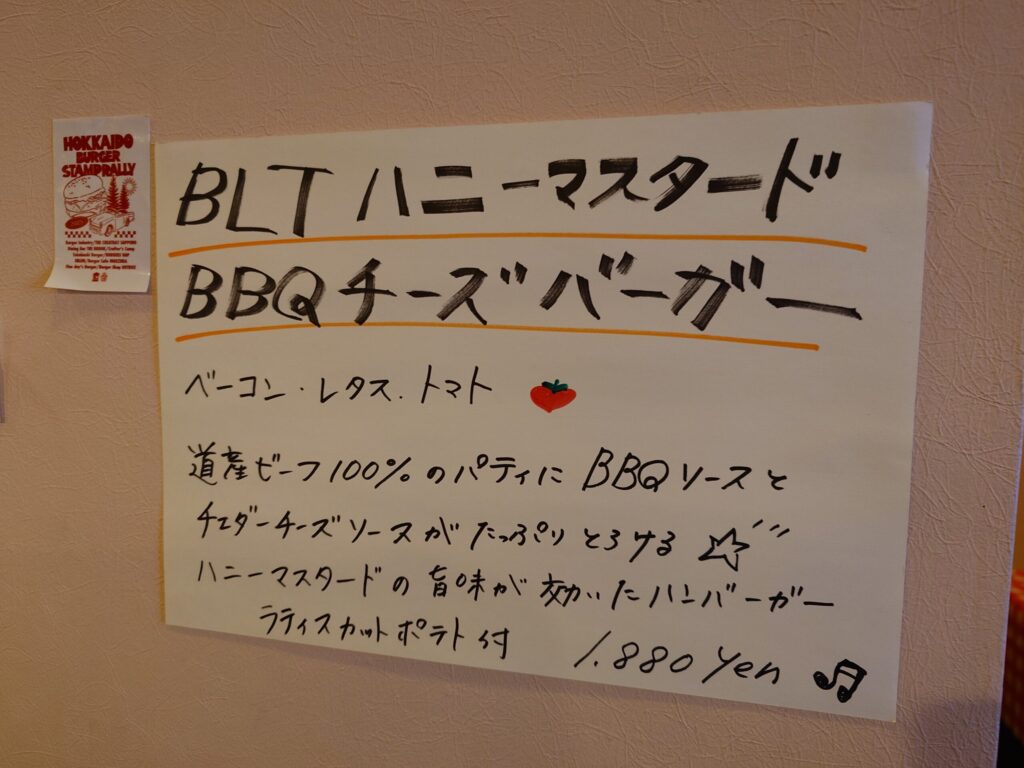 HOKKAIDO
BURGER
STAMPRALLY
BLT ハニーマスタード
BBQチーズバーガー
ベーコン・レタス.トマト
道産ビーフ100%のパティにBBQソースと
チェダーチーズソースがたっぷりとろける
ハニーマスタードの旨味が効いたハンバーガー
ラティスカットポテト付
1.880 Yen